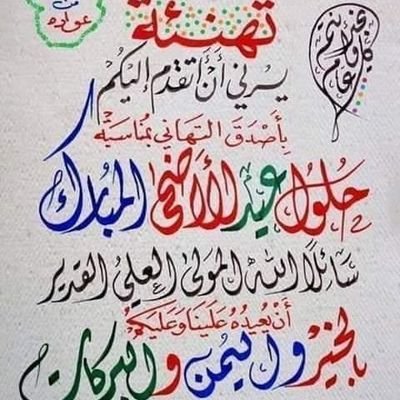 تهنئة
من
عواده
كل عام وأنتم بخير
يسرني أن أتقدم إليكم
بأصدق التهاني بمناسبة
حلول عيد الأضحى المبارك
سائلاً الله المولى العلي القدير
أن يعيده علينا وعليكم
بالخير واليمن والبركات